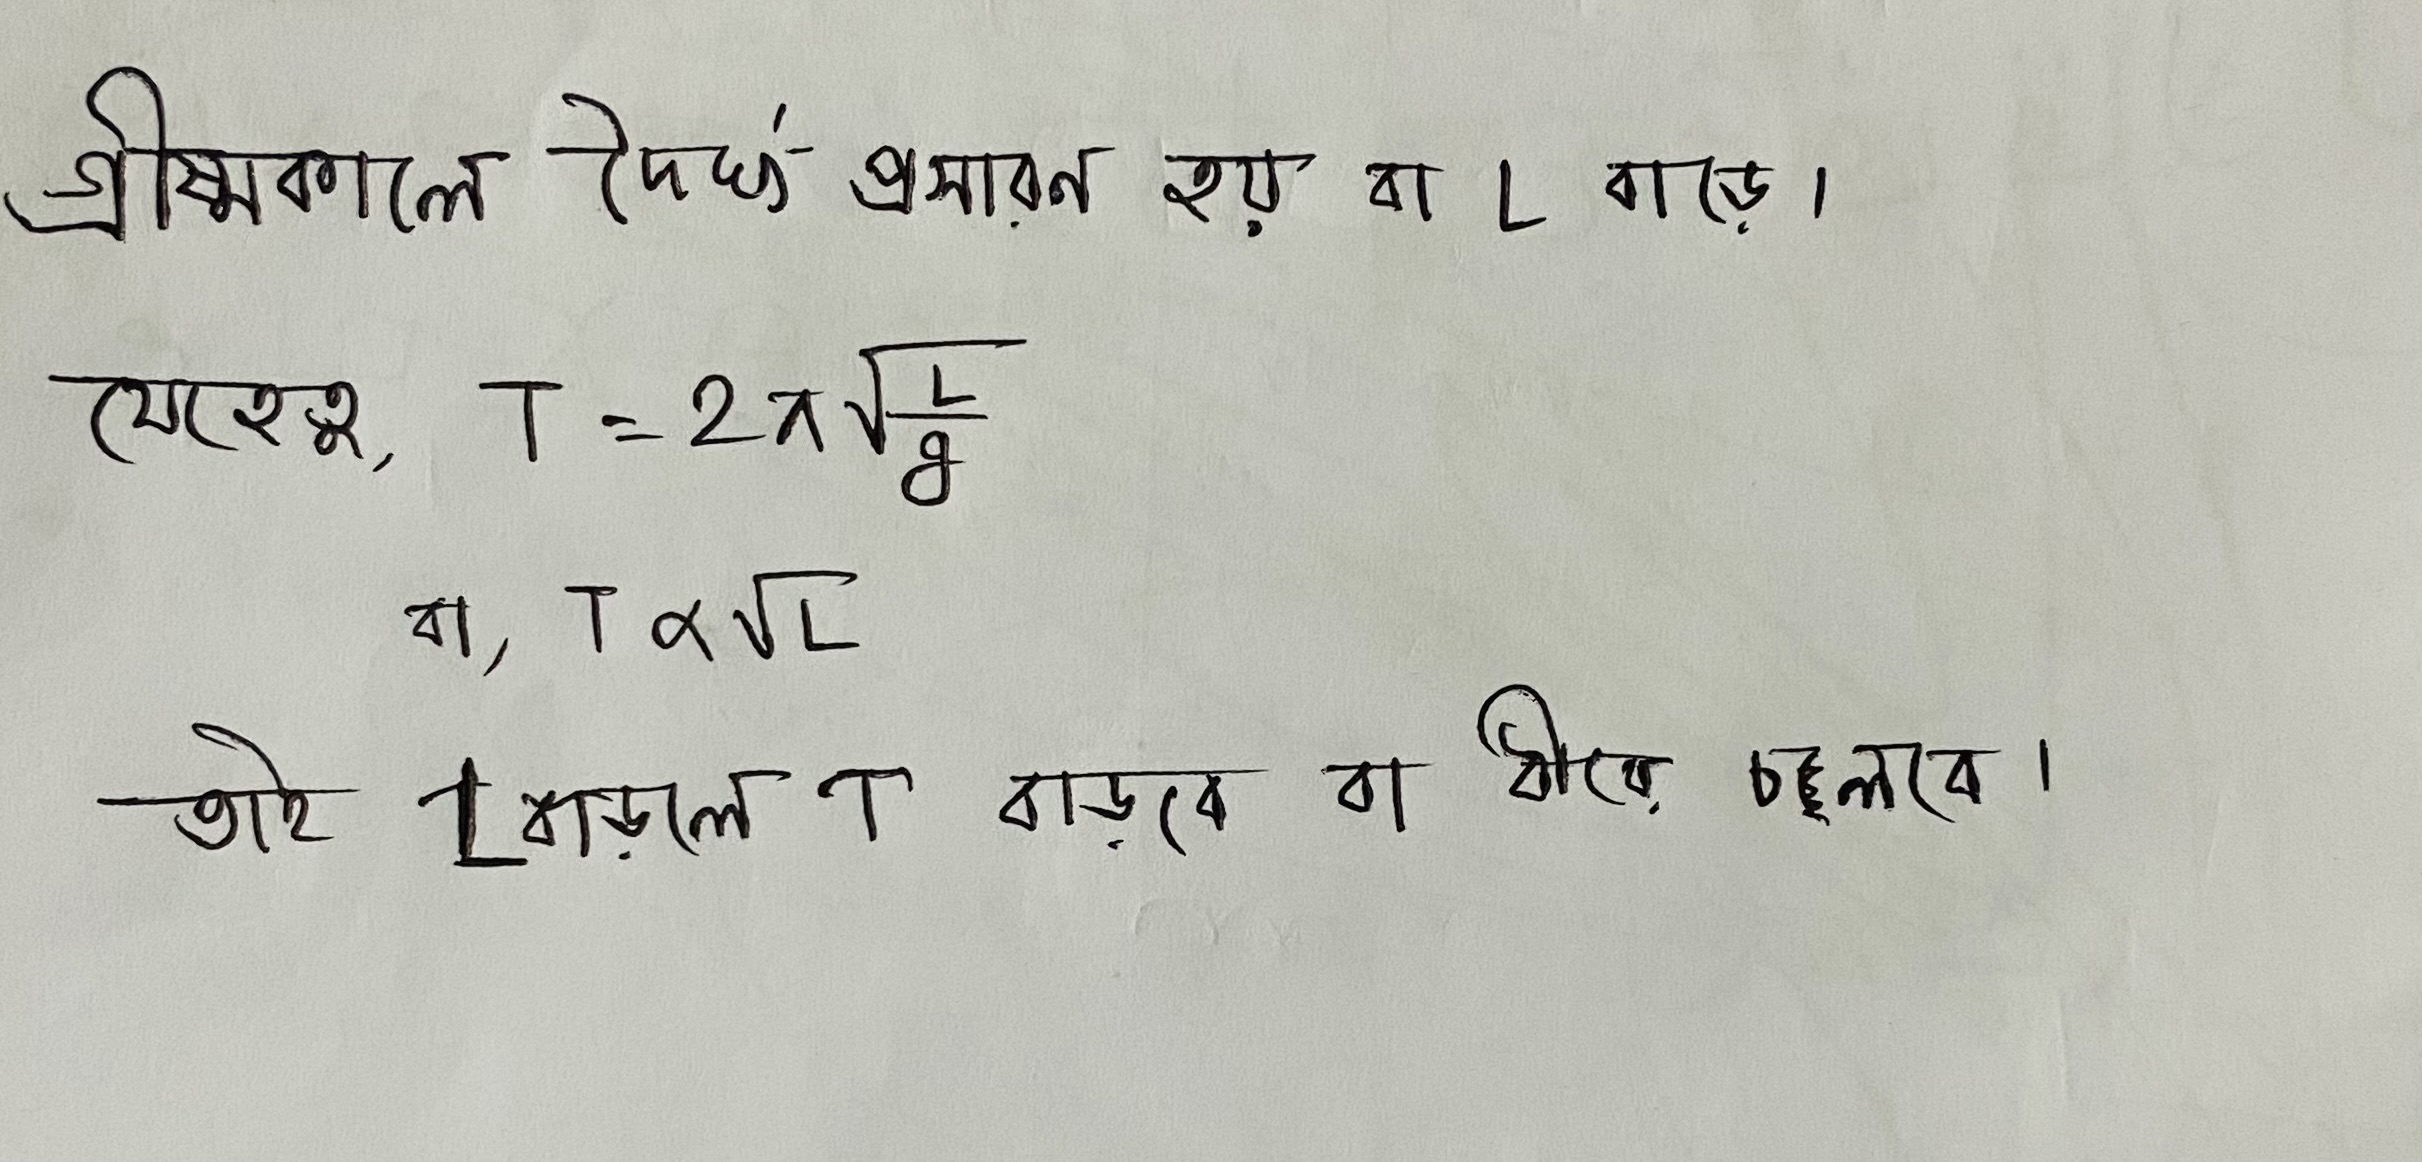 গ্রীষ্মকালে দৈর্ঘ্য প্রসারন হয় বা L বাড়ে।
যেহেতু, T = 2π√(L/g)
বা, T ∝ √L
তাই L বাড়লে T বাড়বে বা ধীরে চলবে।